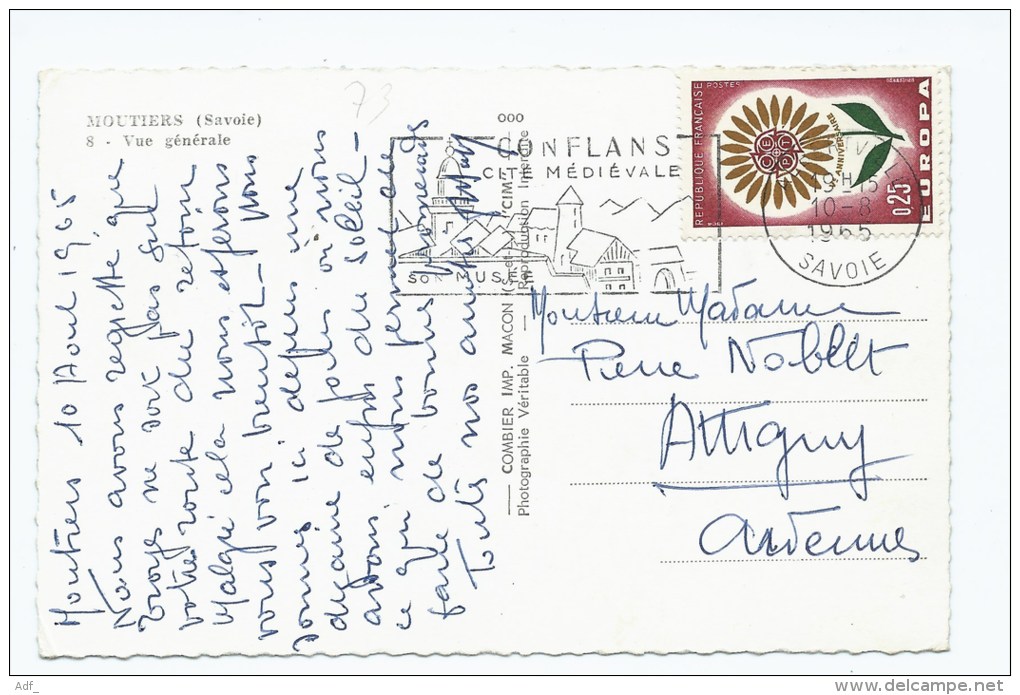 MOUTIERS (Savoie)
8 - Vue générale
73
ooo
Moutiers 10 Aout 1965
Nous avons regretté que
Troyes ne soit pas sur
votre route du retour
Malgré cela nous espérons
vous voir bientôt - nous
sommes ici depuis une
dizaine de jours où nous
avons enfin du soleil -
ce qui nous permet de
faire de bonnes promenades
Toutes nos amitiés
COMBIER IMP. MACON (S.-et-L.) "CIM"
Photographie Véritable - Reproduction Interdite
CONFLANS
CITÉ MÉDIÉVALE
SON MUSÉE
REPUBLIQUE FRANÇAISE
POSTES
CEPT
5e ANNIVERSAIRE
0,25
EUROPA
19H15
10-8
1965
SAVOIE
Monsieur Madame
Pierre Noblet
Attigny
Ardennes
Adf_
www.delcampe.net